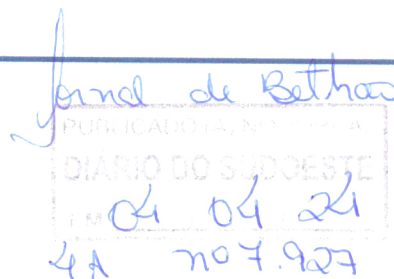 Jornal de Beltrão
PUBLICADO
DIÁRIO DO SUDOESTE
EM 04 04 24
4A nº 7.927